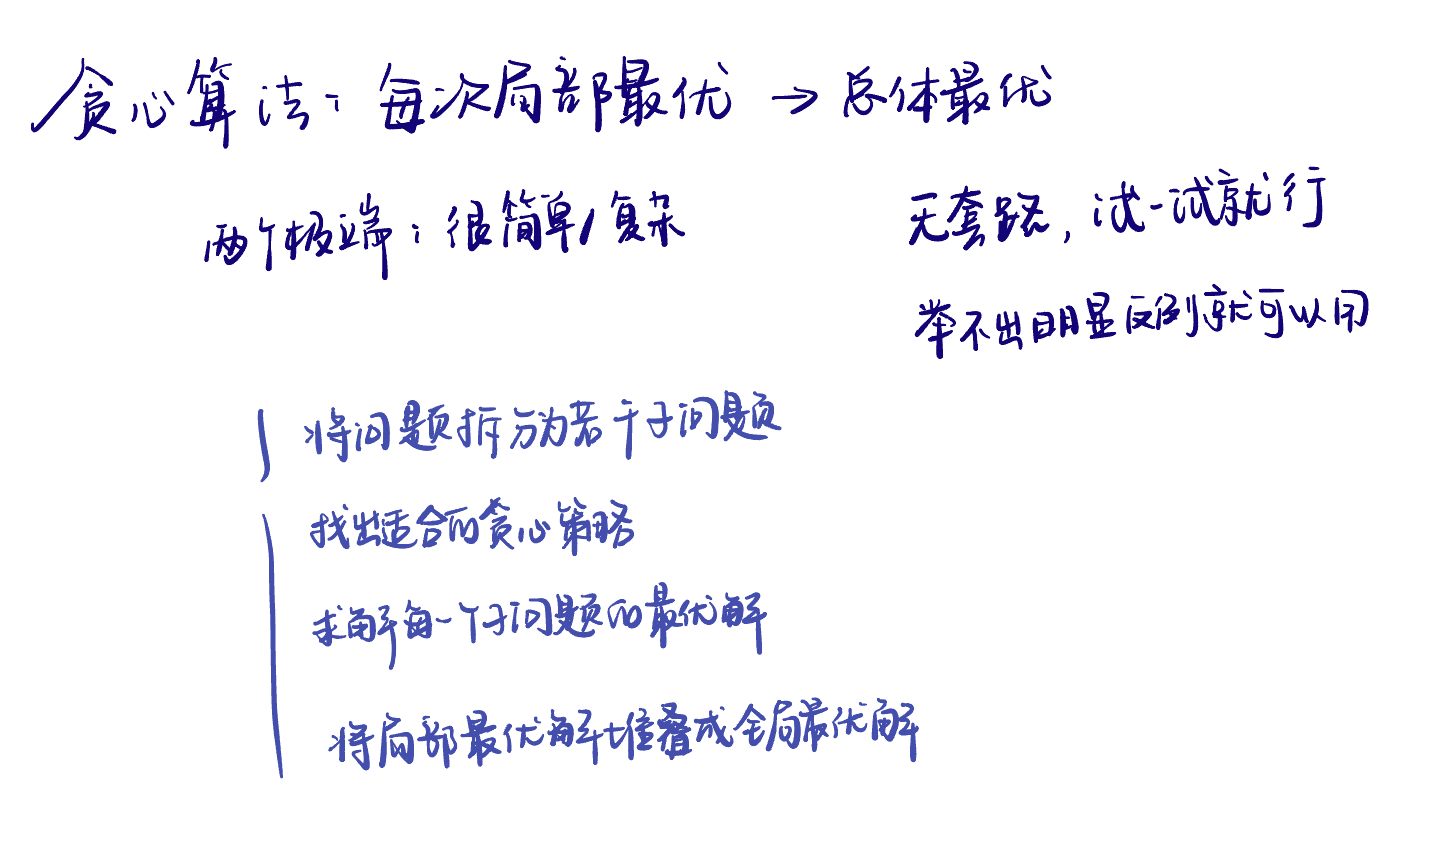 贪心算法：每次局部最优 → 总体最优
两个极端：很简单/复杂
无套路，试一试就行
举不出明显反例就可以用
将问题拆分为若干子问题
找出适合的贪心策略
求解每一个子问题的最优解
将局部最优解堆叠成全局最优解